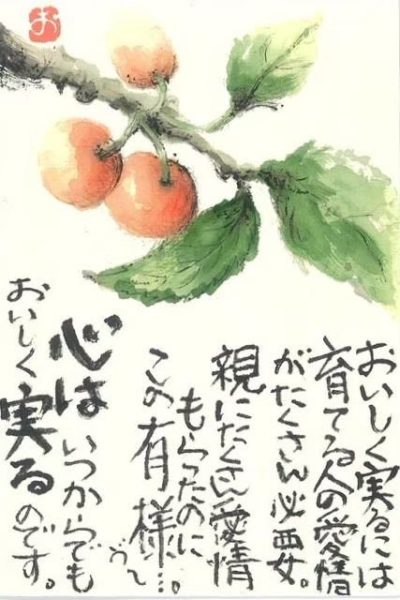 お
おいしく実るには
育てる人の愛情
がたくさん必要。
親にたくさん愛情
もらったのに
この有様…。
心はいつからでも
おいしく実るのです。